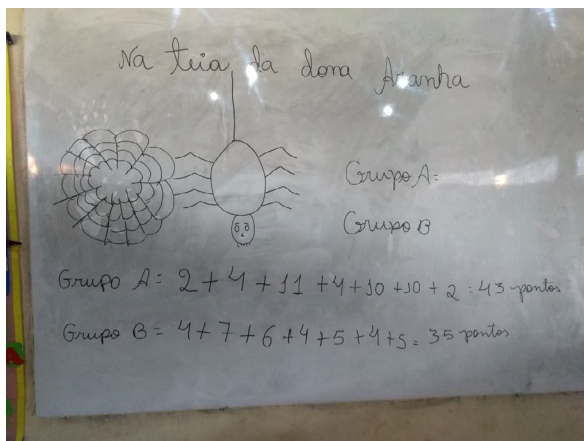 Na teia da dona Aranha
Grupo A=
Grupo B
Grupo A= 2+4+11+4+10+10+2=43 pontos
Grupo B= 4+7+6+4+5+4+5=35 pontos